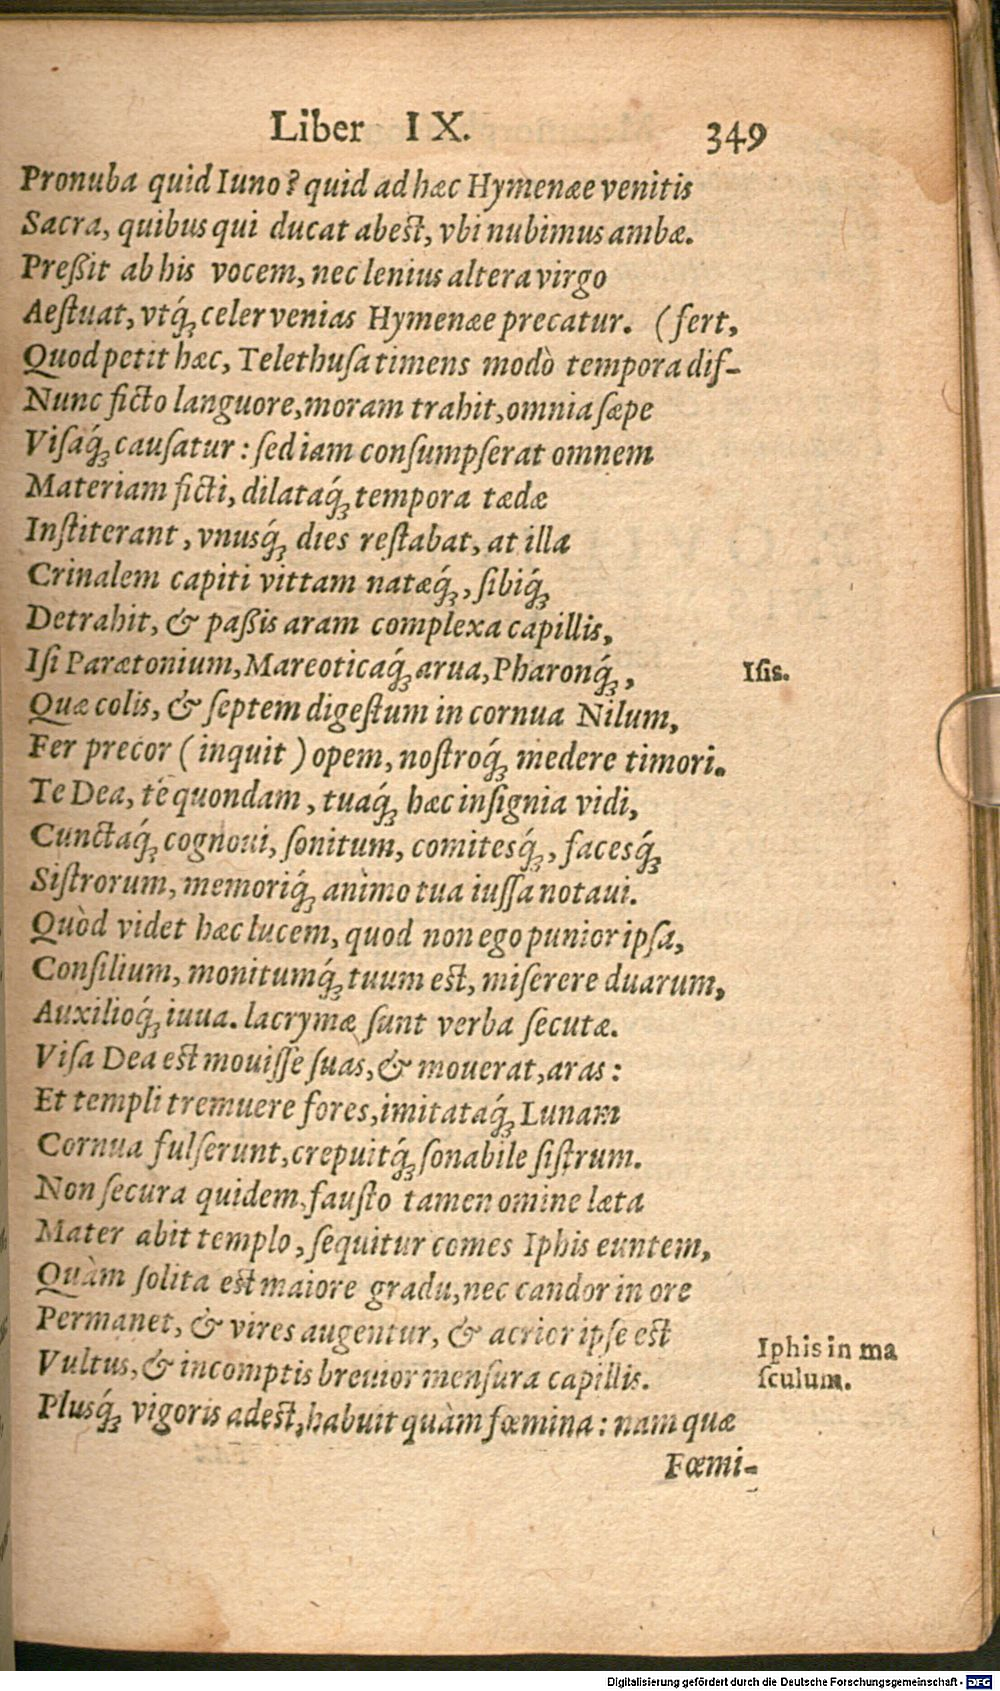 Liber IX. 349
Pronuba quid Iuno? quid ad hæc Hymenæe venitis
Sacra, quibus qui ducat abest, vbi nubimus ambæ.
Preßit ab his vocem, nec lenius altera virgo
Aestuat, vtq́; celer venias Hymenæe precatur. (fert,
Quod petit hæc, Telethusa timens modò tempora dif-
Nunc ficto languore, moram trahit, omnia sæpe
Visaq́; causatur: sed iam consumpserat omnem
Materiam ficti, dilataq́; tempora tædæ
Institerant, vnusq́; dies restabat, at illa
Crinalem capiti vittam natæq́;, sibiq́;
Detrahit, & paßis aram complexa capillis,
Isi Parætonium, Mareoticaq́; arua, Pharonq́;,
Isis.
Quæ colis, & septem digestum in cornua Nilum,
Fer precor (inquit) opem, nostroq́; medere timori.
Te Dea, té quondam, tuaq́; hæc insignia vidi,
Cunctaq́; cognoui, sonitum, comitesq́;, facesq́;
Sistrorum, memoriq́; animo tua iussa notaui.
Quòd videt hæc lucem, quod non ego punior ipsa,
Consilium, monitumq́; tuum est, miserere duarum,
Auxilioq́; iuua. lacrymæ sunt verba secutæ.
Visa Dea est mouisse suas, & mouerat, aras:
Et templi tremuere fores, imitataq́; Lunam
Cornua fulserunt, crepuitq́; sonabile sistrum.
Non secura quidem, fausto tamen omine læta
Mater abit templo, sequitur comes Iphis euntem,
Quàm solita est maiore gradu, nec candor in ore
Permanet, & vires augentur, & acrior ipse est
Iphis in ma
Vultus, & incomptis breuior mensura capillis.
sculum.
Plusq́; vigoris adest, habuit quàm fœmina: nam quæ
Fœmi-
Digitalisierung gefördert durch die Deutsche Forschungsgemeinschaft - DFG